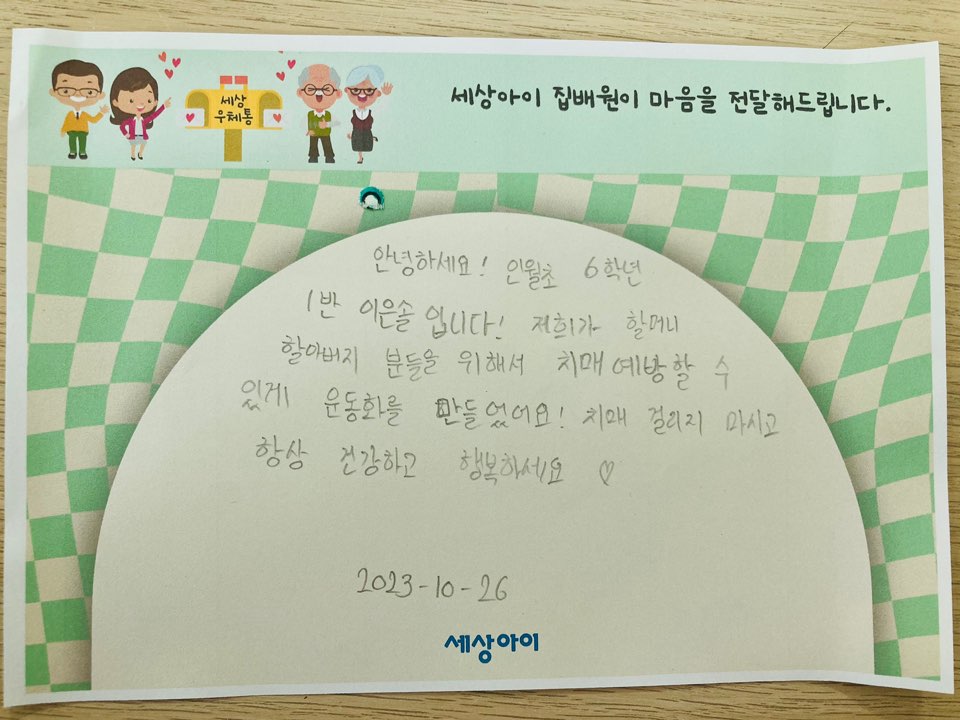 세상
우체통
세상아이 집배원이 마음을 전달해드립니다.
안녕하세요! 인월초 6학년
1반 이은솔 입니다! 저희가 할머니
할아버지 분들을 위해서 치매예방할 수
있게 운동화를 만들었어요! 치매 걸리지 마시고
항상 건강하고 행복하세요 ♡
2023-10-26
세상아이